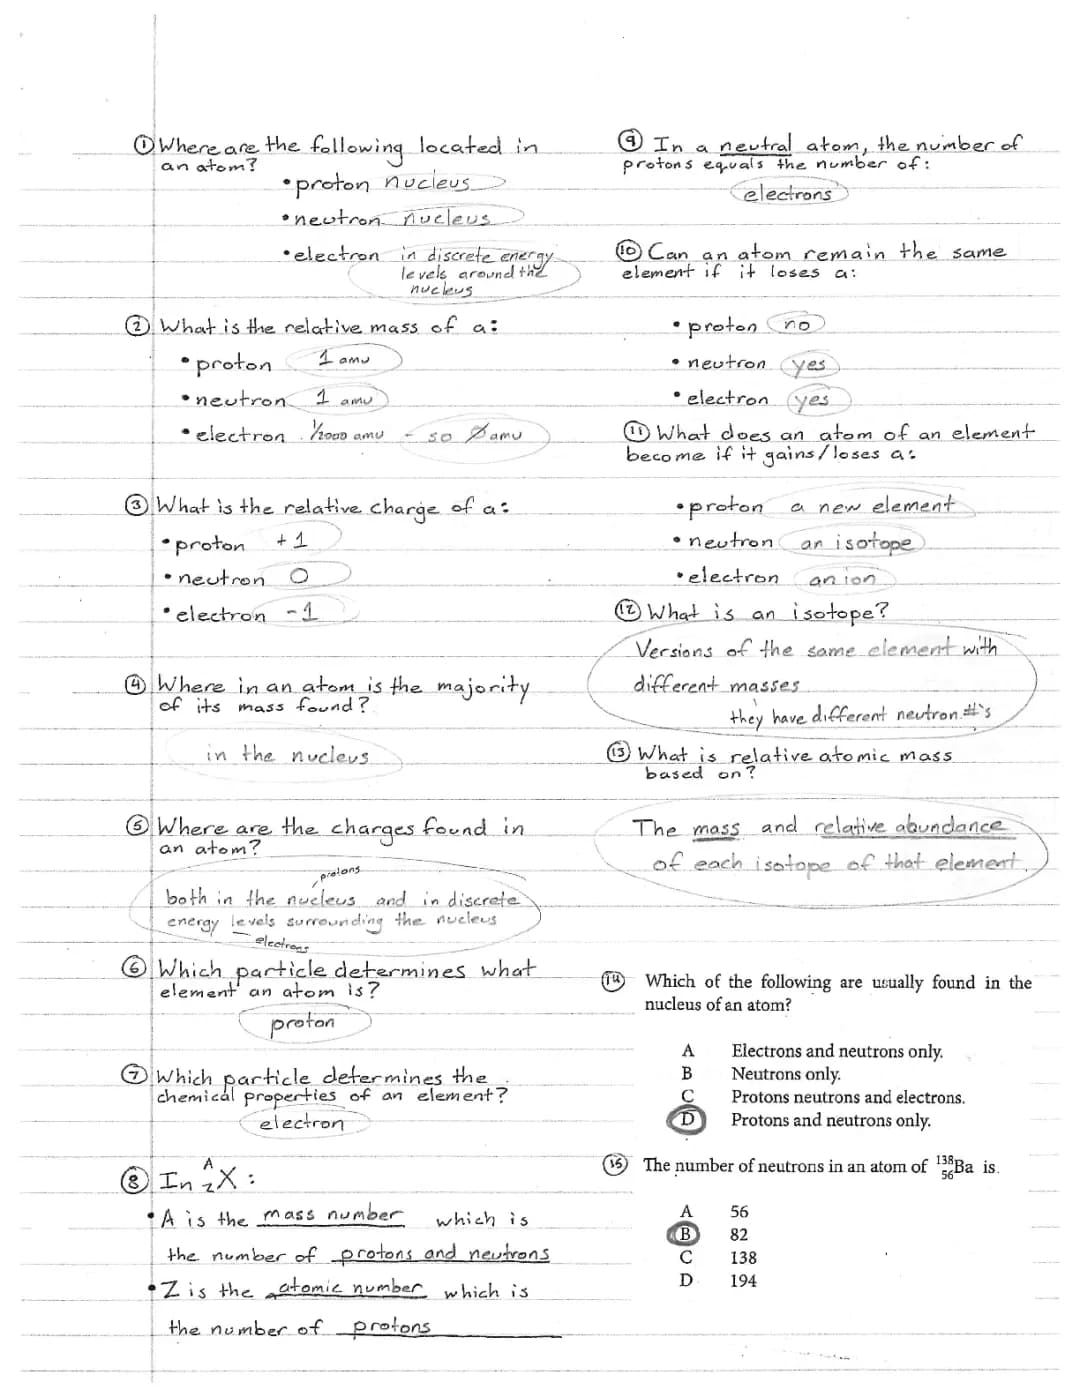 ① Where are the following located in
an atom?
• proton nucleus
• neutron nucleus
• electron in discrete energy
levels around the
nucleus
② What is the relative mass of a:
• proton 1 amu
• neutron 1 amu
• electron 1/2000 amu - so 0 amu
③ What is the relative charge of a:
• proton +1
• neutron 0
• electron -1
④ Where in an atom is the majority
of its mass found?
in the nucleus
⑤ Where are the charges found in
an atom?
protons
both in the nucleus and in discrete
energy levels surrounding the nucleus
electrons
⑥ Which particle determines what
element an atom is?
proton
⑦ Which particle determines the
chemical properties of an element?
electron
⑧ In ᴬ_Z X:
• A is the mass number which is
the number of protons and neutrons
• Z is the atomic number which is
the number of protons
⑨ In a neutral atom, the number of
protons equals the number of:
electrons
⑩ Can an atom remain the same
element if it loses a:
• proton no
• neutron yes
• electron yes
⑪ What does an atom of an element
become if it gains/loses a:
• proton a new element
• neutron an isotope
• electron an ion
⑫ What is an isotope?
Versions of the same element with
different masses
they have different neutron #'s
⑬ What is relative atomic mass
based on?
The mass and relative abundance
of each isotope of that element.
⑭ Which of the following are usually found in the
nucleus of an atom?
A Electrons and neutrons only.
B Neutrons only.
C Protons neutrons and electrons.
D Protons and neutrons only.
⑮ The number of neutrons in an atom of ¹³⁸₅₆Ba is.
A 56
B 82
C 138
D 194